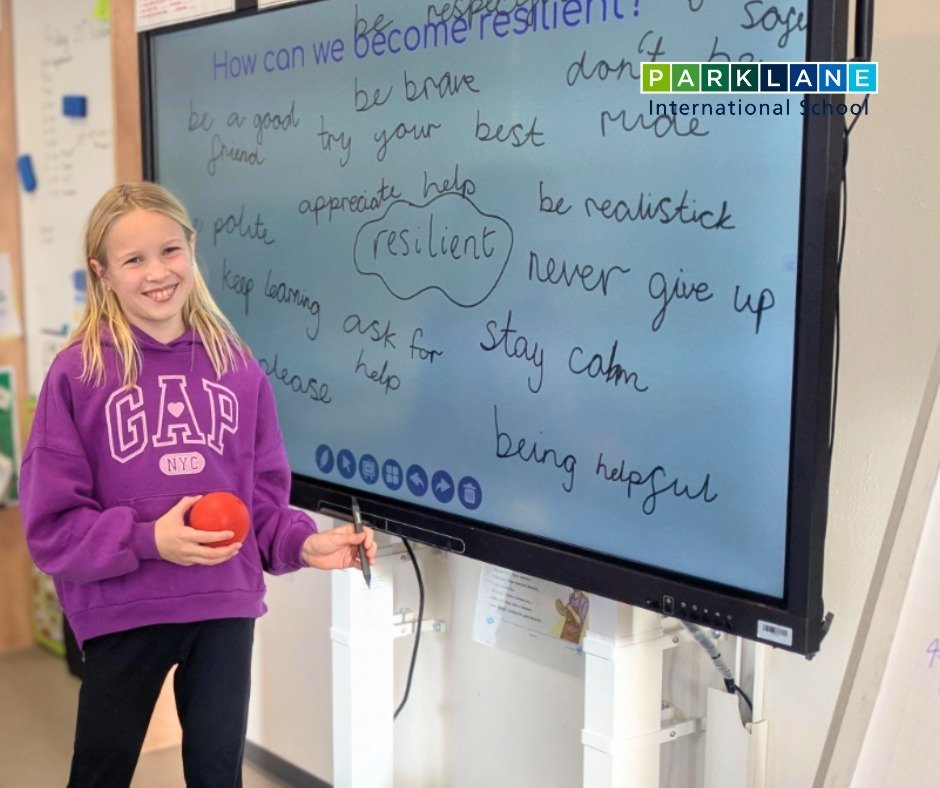 be respect
How can we become resilient?
be brave
don't be
rude
be a good
friend
try your best
PARK LANE
International School
polite
appreciate help
be realistick
resilient
never give up
keep learning
ask for
help
stay calm
please
being helpful
GAP
NYC